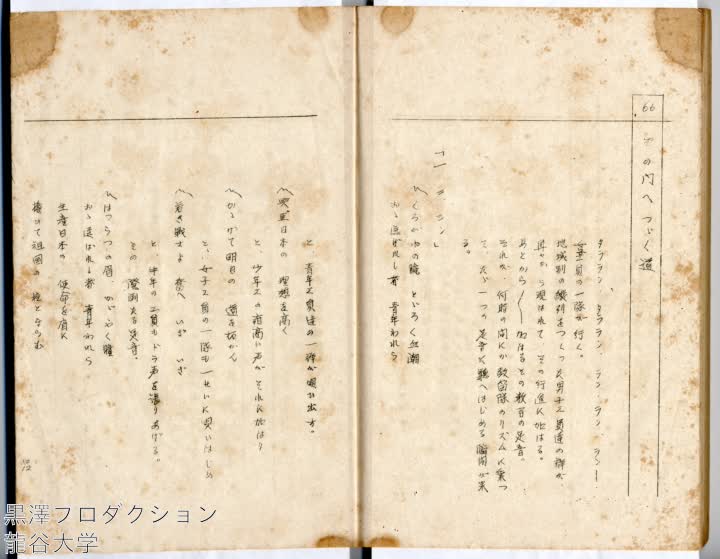 66
の門へつゞく道
タララン、タララン、ラン、ラン、ラン――
女工員の一隊が行く。
地域別の縦列をつくつた男子工員達の群が、
から現はれて その行進に加はる。
あとから／＼加はるその数百の足音。
それが、何時の間にか鼓笛隊のリズムに乗つ
て、たゞ一つの足音に整へはじめる瞬間が来
る。
〽くろがねの腕 とゞろく血潮
おゝ選ばれし者 青年われら
と 青年工員達の一群が唄ひ出す。
〽興亜日本の 理想も高く
と 少年工の疳高い声がそれに加はり
〽かゝげて明日の 道を拓かん
と、女子工員の一隊も一せいに唄いはじめ
〽若き戦士よ 奮へ いざ いざ
と、中年の工員もドラ声を張りあげる。
その 溌剌たる足音。
〽はつらつの眉 かゞやく瞳
おゝ選ばれし者 青年われら
生産日本の 使命を肩に
擧げて祖国の 楯とならむ
黒澤プロダクション
龍谷大学